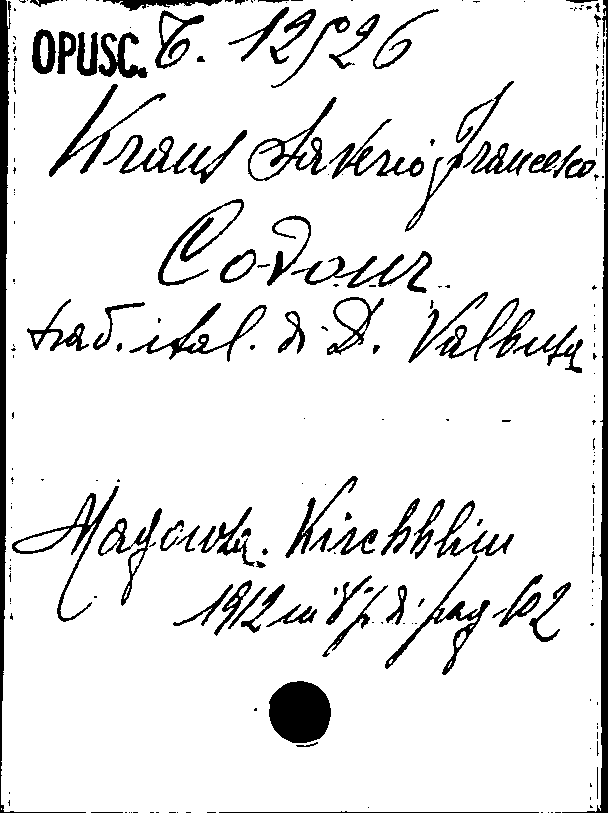 OPUSC. C. 12526
Kraus Saverio Francesco
Cavour
trad. ital. di D. Valbusa
Magonza. Kirchheim
1912 in 8° di pag 102